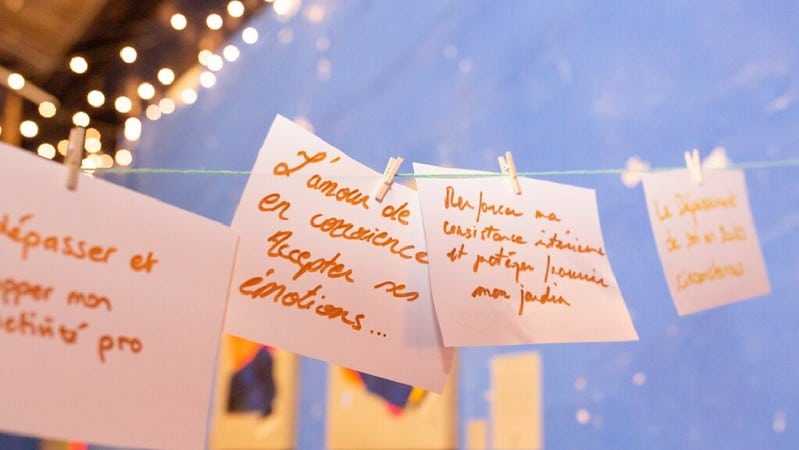 dépasser et
pper mon
activité pro
L'amour de
en conscience
Accepter ses
émotions...
Renforcer ma
consistance intérieure
et protéger
mon jardin
Le Dépassement
de